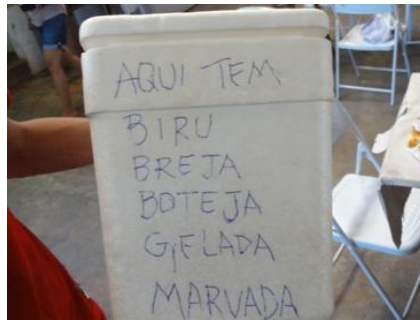 AQUI TEM
BIRU
BREJA
BOTEJA
GELADA
MARVADA